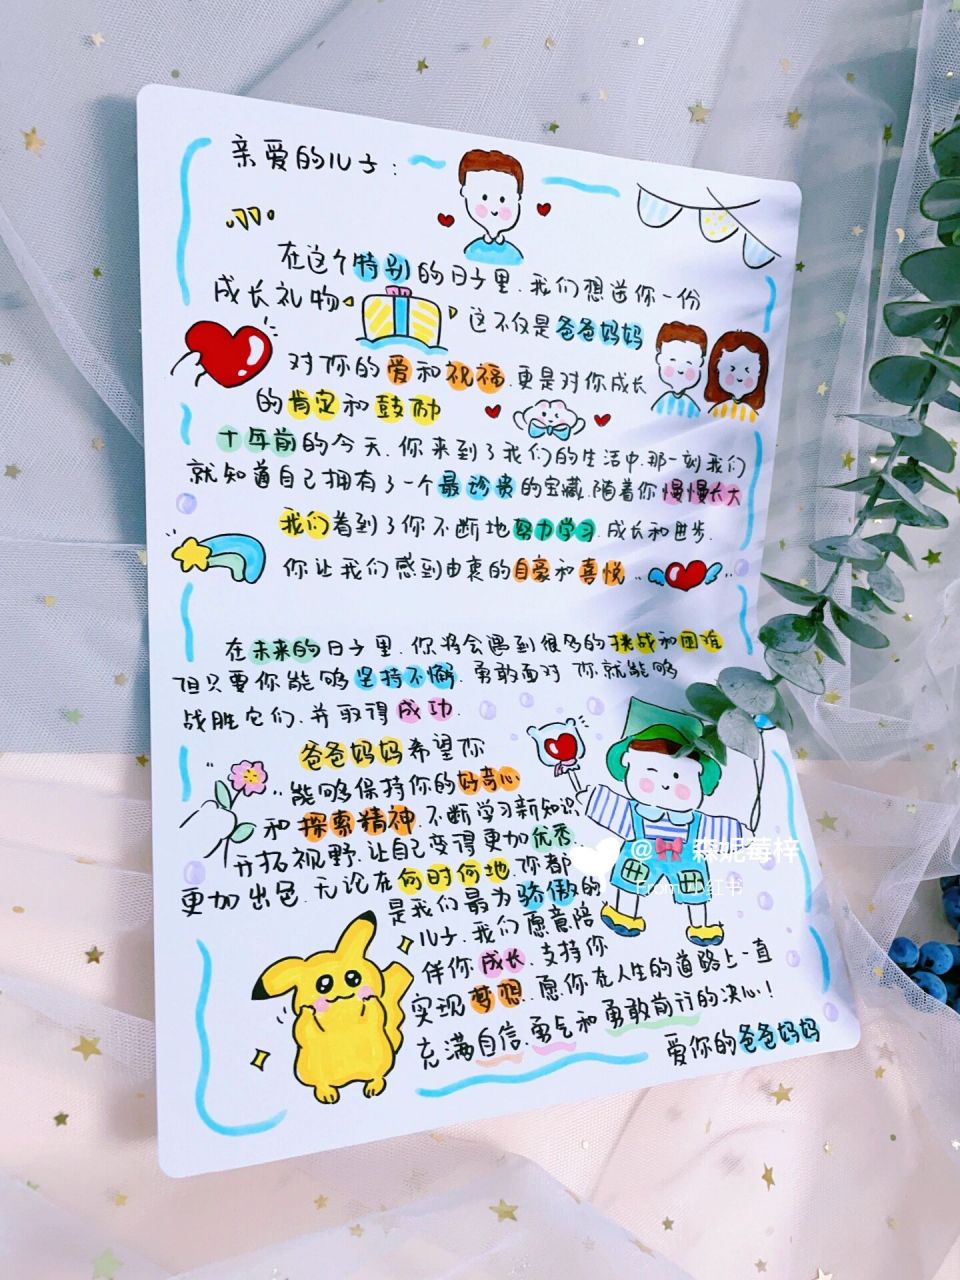 亲爱的儿子:
在这个特别的日子里.我们想送你一份
成长礼物
这不仅是爸爸妈妈
对你的爱和祝福.更是对你成长
的肯定和鼓励
十年前的今天.你来到了我们的生活中.那一刻我们
就知道自己拥有了一个最珍贵的宝藏.随着你慢慢长大
我们看到了你不断地努力学习.成长和进步.
你让我们感到由衷的自豪和喜悦..
在未来的日子里.你将会遇到很多的挑战和困难
但只要你能够坚持不懈.勇敢面对 你就能够
战胜它们.并取得成功.
爸爸妈妈希望你
能够保持你的好奇心
和探索精神.不断学习新知识
开拓视野.让自己变得更加优秀.
更加出色.无论在何时何地.你都
是我们最为骄傲的
儿子.我们愿意陪
伴你成长.支持你
实现梦想.愿你在人生的道路上一直
充满自信.勇气和勇敢前行的决心!
爱你的爸爸妈妈
@🎀森妮莓梓
From小红书